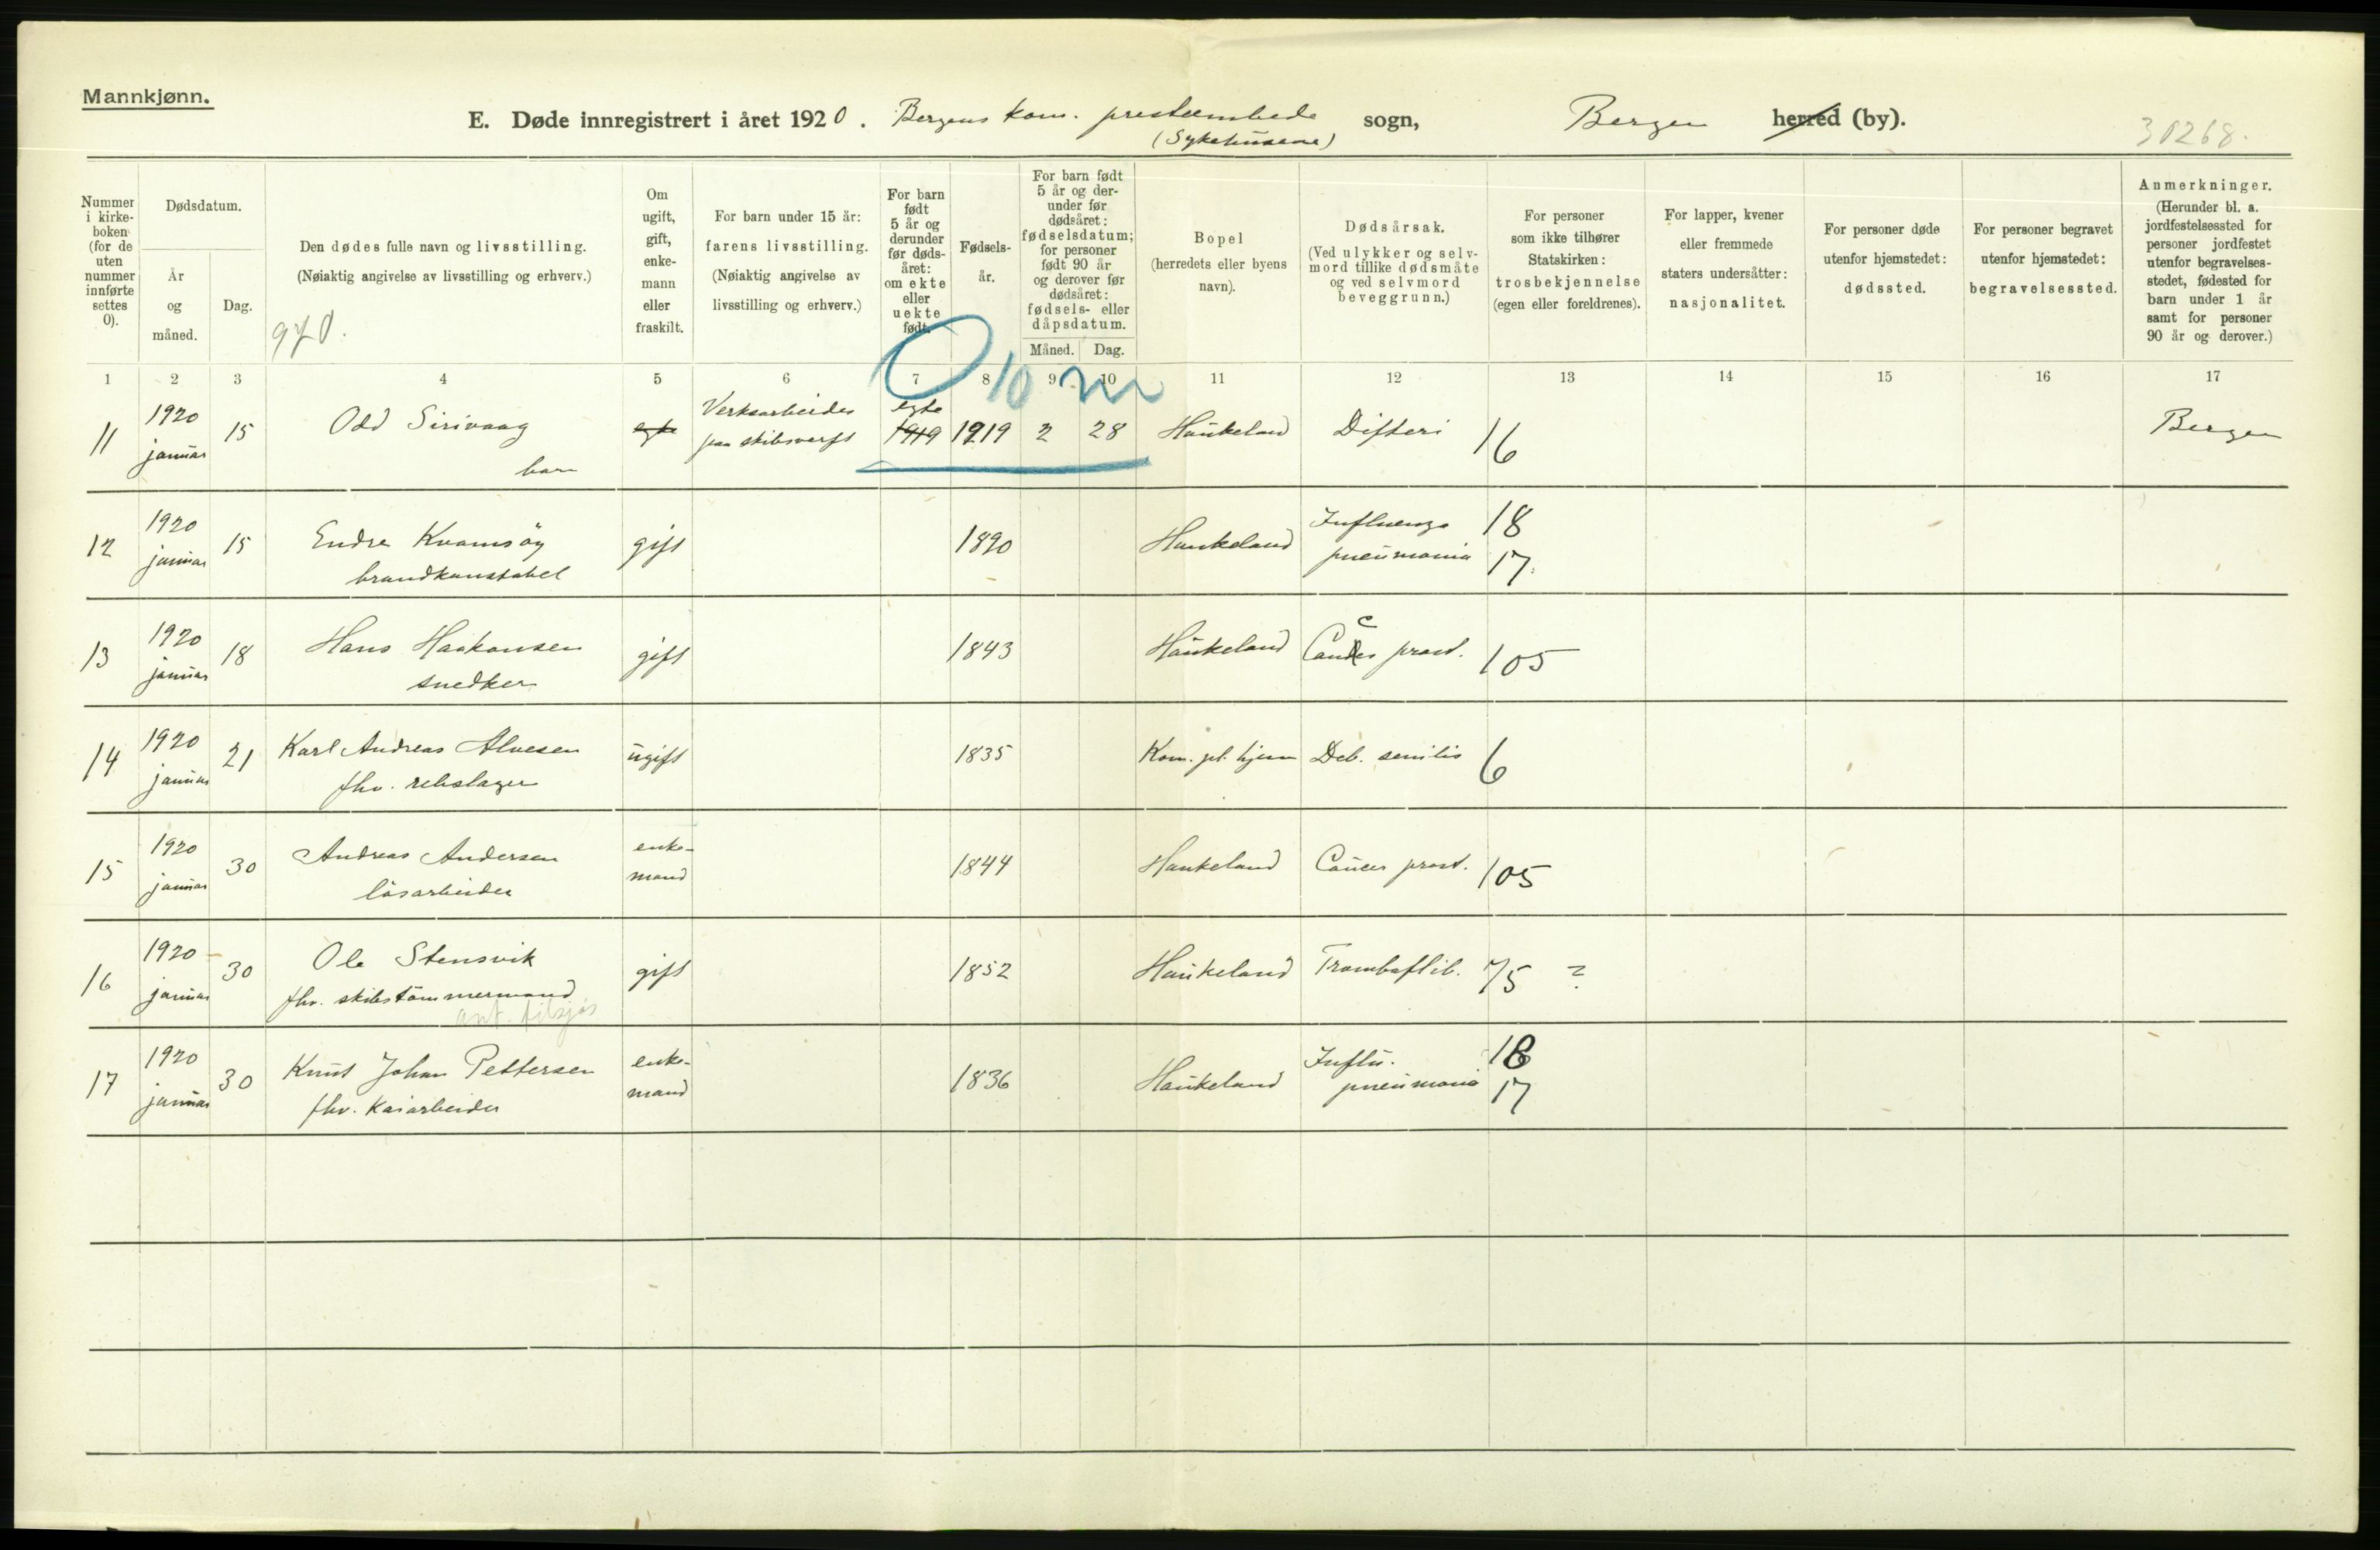 Mannkjønn.
E. Døde innregistrert i året 1920. Bergens kom. presteembede sogn, Bergen herred (by).
(Sykehusene)
30268.
Nummer i kirke-boken (for de uten nummer innførte settes 0).
Dødsdatum.
År og måned.
Dag.
Den dødes fulle navn og livsstilling.
(Nøiaktig angivelse av livsstilling og erhverv.)
970.
Om ugift, gift, enke-mann eller fraskilt.
For barn under 15 år:
farens livsstilling.
(Nøiaktig angivelse av livsstilling og erhverv.)
For barn født 5 år og derunder før døds-året: om ekte eller uekte født.
Fødsels-år.
For barn født 5 år og der-under før dødsåret: fødselsdatum; for personer født 90 år og derover før dødsåret: fødsels- eller dåpsdatum.
Måned. Dag.
Bopel
(herredets eller byens navn).
Dødsårsak.
(Ved ulykker og selv-mord tillike dødsmåte og ved selvmord beveggrunn.)
For personer som ikke tilhører Statskirken: trosbekjennelse (egen eller foreldrenes).
For lapper, kvener eller fremmede staters undersåtter: nasjonalitet.
For personer døde utenfor hjemstedet: dødssted.
For personer begravet utenfor hjemstedet: begravelsessted.
Anmerkninger.
(Herunder bl. a. jordfestelsessted for personer jordfestet utenfor begravelses-stedet, fødested for barn under 1 år samt for personer 90 år og derover.)
1 2 3 4 5 6 7 8 9 10 11 12 13 14 15 16 17
0 10 m
11 1920 januar 15 Odd Sirivaag barn egte Verksarbeider paa skibsverft egte 1919 1919 2 28 Haukeland Difteri 16 Bergen
12 1920 januar 15 Endre Kvamsöy brandkonstabel gift 1890 Haukeland Influenza pneumonia 18 17.
13 1920 januar 18 Hans Haakonsen snedker gift 1843 Haukeland Cancer prost. 105
14 1920 januar 21 Karl Andreas Alvesen fhv. rebslager ugift 1835 Kom. pl. hjem Deb. senilis 6
15 1920 januar 30 Andreas Andersen lösarbeider enke-mand 1844 Haukeland Cancer prost. 105
16 1920 januar 30 Ole Stensvik fhv. skibstömmermand gift 1852 Haukeland Tromboflib. 75 ?
17 1920 januar 30 Knut Johan Pettersen fhv. kaiarbeider enke-mand 1836 Haukeland Influ. pneumonia 18 17